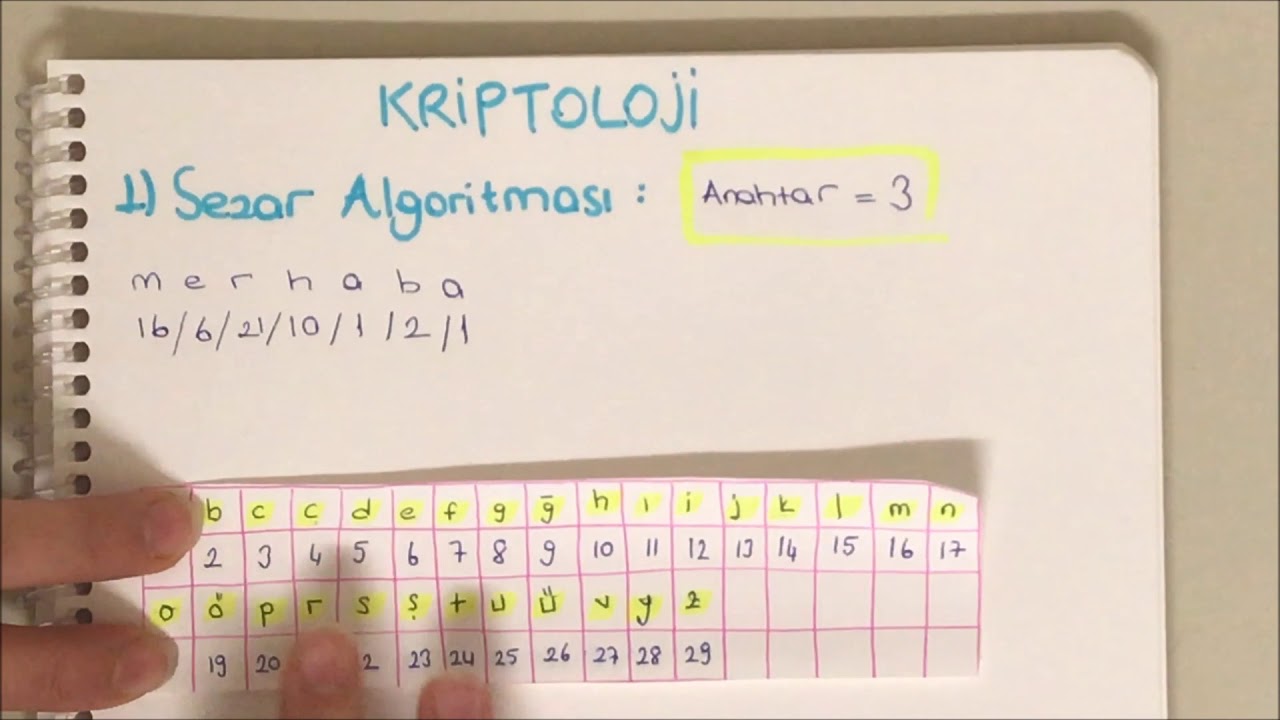 KRİPTOLOJİ
1) Sezar Algoritması :
Anahtar = 3
m e r h a b a
16/6/21/10/1/2/1
b c ç d e f g ğ h ı i j k l m n
2 3 4 5 6 7 8 9 10 11 12 13 14 15 16 17
o ö p r s ş t u ü v y z
19 20 2 23 24 25 26 27 28 29